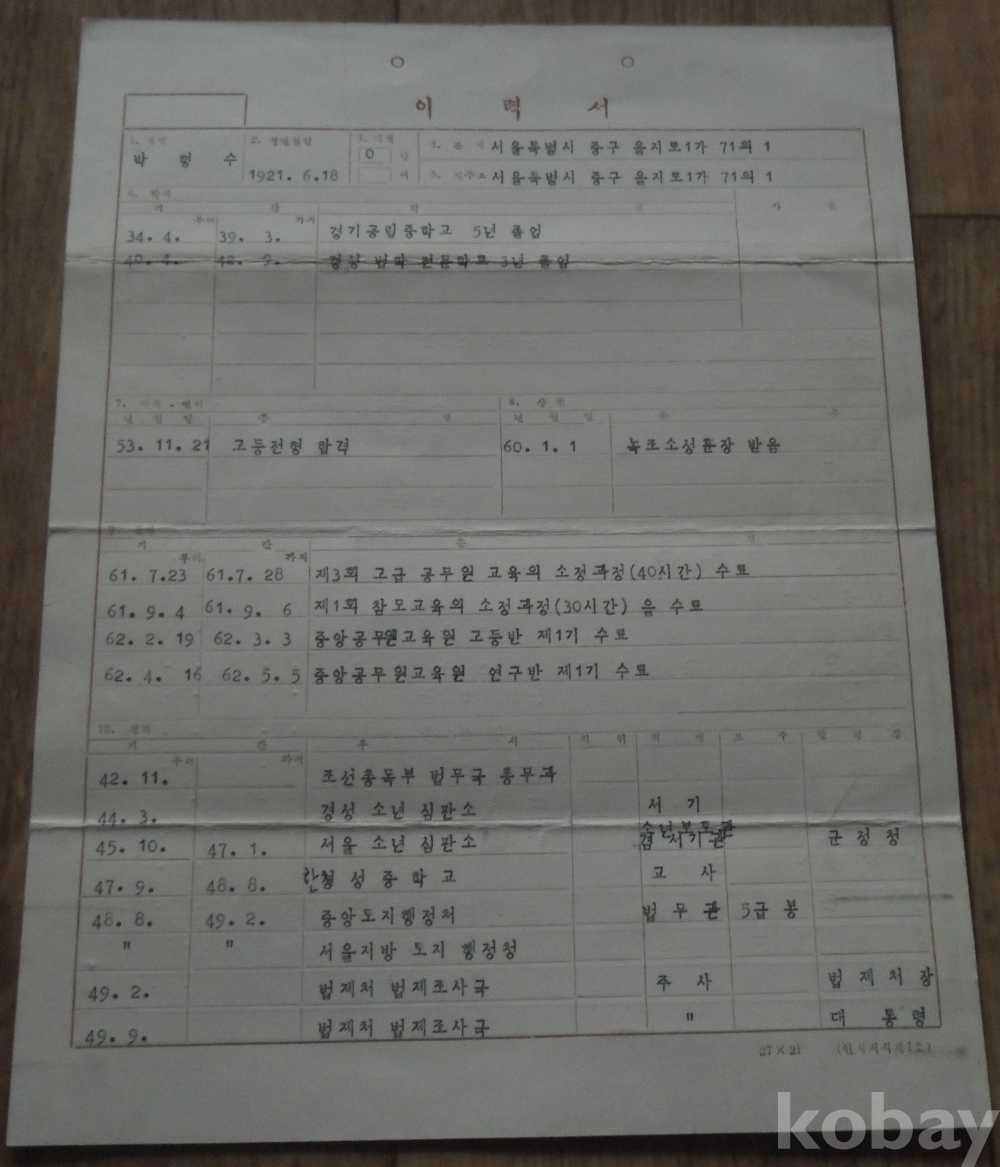 이 력 서
1. 성명 2. 생년월일 3. 성별 4. 본 적 서울특별시 중구 을지로1가 71의 1
박 형 수 1921. 6.18 0 남
여 5. 현주소 서울특별시 중구 을지로1가 71의 1
6. 학력
기 간 학 력 사 진
부터 까지
34. 4. 39. 3. 경기공립중학교 5년 졸업
40. 4. 42. 9. 법학 전문학교 3년 졸업
7. 자격 · 면허 8. 상벌
년 월 일 종 별 년 월 일 종
53. 11. 21 고등전형 합격 60. 1. 1 녹조소성훈장 받음
기 간 종 별
부터 까지
61. 7.23 61.7. 28 제3회 고급 공무원 교육의 소정과정(40시간) 수료
61. 9. 4 61. 9. 6 제1회 참모교육의 소정과정(30시간) 을 수료
62. 2. 19 62. 3. 3 중앙공무원교육원 고등반 제1기 수료
62. 4. 16 62. 5. 5 중앙공무원교육원 연구반 제1기 수료
10. 경력
기 간 부 서 직 위 직 명 보 수 발 령 청
부터 까지
42. 11. 조선총독부 법무국 총무과
44. 3. 경성 소년 심판소 서 기
45. 10. 47. 1. 서울 소년 심판소 소년보호관 겸 서기관 군 정 청
47. 9. 48. 8. 한성중학교 교 사
48. 8. 49. 2. 중앙토지행정처 법 무 관 5급 봉
" " 서울지방 토지 행정청
49. 2. 법제처 법제조사국 주 사 법 제 처 장
49. 9. 법제처 법제조사국 " 대 통 령
27×21
kobay